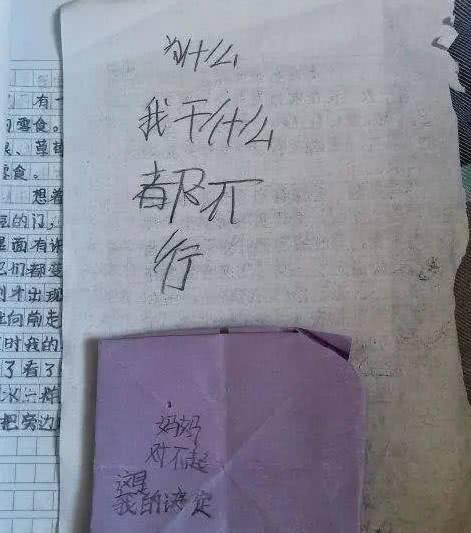 为什么
我干什么
都不
行
妈妈
对不起
这是
我的决定
有
零食。
、草莓
零食。
想着
的门,
里面有
们都变
才出现
向前走
时我的
了看了
把旁边